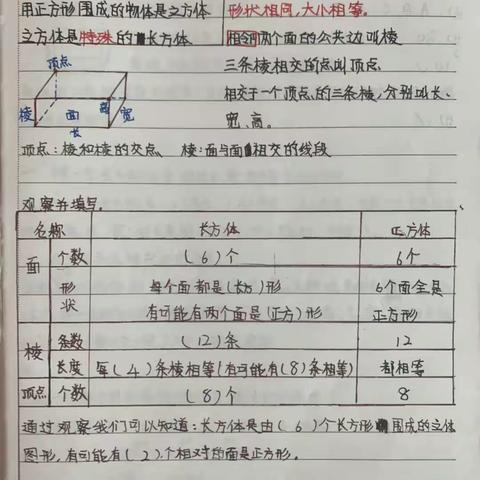 用正方形围成的物体是立方体 形状相同,大小相等。
立方体是特殊的长方体 相邻两个面的公共边叫棱
顶点 三条棱相交的点叫顶点
棱 面 高 宽 相交于一个顶点的三条棱,分别叫长、
长 宽、高。
顶点:棱和棱的交点、 棱:面与面相交的线段
观察并填写。
名称 长方体 正方体
面 个数 (6)个 6个
形 每个面都是(长方)形 6个面全是
状 有可能有两个面是(正方)形 正方形
棱 条数 (12)条 12
长度 每(4)条棱相等(有可能有(8)条相等) 都相等
顶点 个数 (8)个 8
通过观察我们可以知道:长方体是由(6)个长方形围成的立体
图形,有可能有(2)个相对的面是正方形。